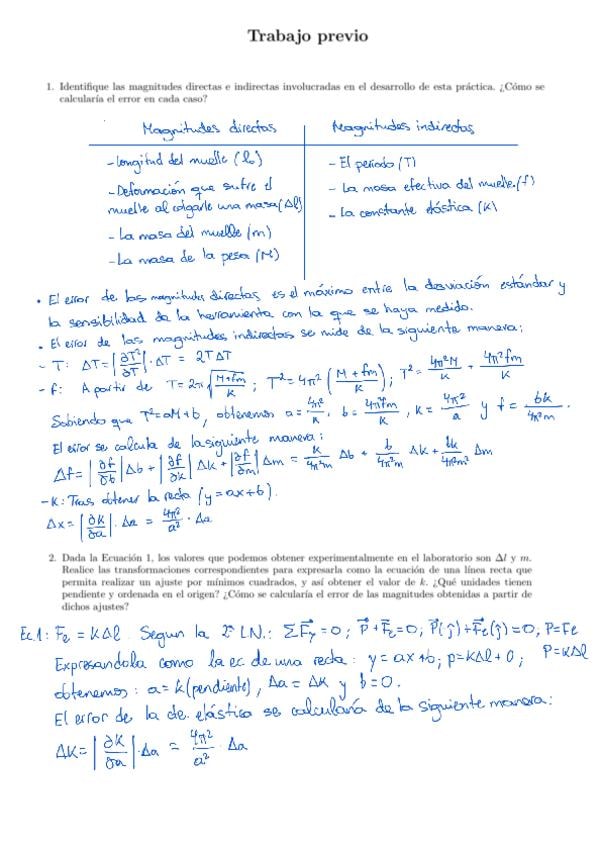 Trabajo previo
1. Identifique las magnitudes directas e indirectas involucradas en el desarrollo de esta práctica. ¿Cómo se
calcularía el error en cada caso?
Magnitudes directas
Magnitudes indirectas
- Longitud del muelle (l₀)
- Deformación que sufre el
muelle al colgarle una masa (Δl)
- La masa del muelle (m)
- La masa de la pesa (M)
- El periodo (T)
- La masa efectiva del muelle. (f)
- La constante elástica (K)
• El error de las magnitudes directas es el máximo entre la desviación estándar y
la sensibilidad de la herramienta con la que se haya medido.
• El error de las magnitudes indirectas se mide de la siguiente manera:
- T: ΔT = |∂T²/∂T| · ΔT = 2TΔT
- f: A partir de T = 2π √((M+fm)/K) ; T² = 4π² ((M + fm)/K) ; T² = 4π²M/K + 4π²fm/K
Sabiendo que T² = aM + b, obtenemos a = 4π²/K, b = 4π²fm/K, K = 4π²/a y f = bk/4π²m.
El error se calcula de la siguiente manera:
Δf = |∂f/∂b| Δb + |∂f/∂k| Δk + |∂f/∂m| Δm = k/4π²m Δb + b/4π²m Δk + bk/4π²m² Δm
- K: Tras obtener la recta (y = ax + b).
Δx = |∂K/∂a| · Δa = 4π²/a² · Δa
2. Dada la Ecuación 1, los valores que podemos obtener experimentalmente en el laboratorio son Δl y m.
Realice las transformaciones correspondientes para expresarla como la ecuación de una línea recta que
permita realizar un ajuste por mínimos cuadrados, y así obtener el valor de k. ¿Qué unidades tienen
pendiente y ordenada en el origen? ¿Cómo se calcularía el error de las magnitudes obtenidas a partir de
dichos ajustes?
Ec.1: Fe = KΔl. Segun la 2ª L.N.: ΣF⃗y = 0 ; P⃗ + F⃗e = 0 ; P⃗(ĵ) + F⃗e(ĵ) = 0 ; P = Fe
Expresandola como la ec de una recta: y = ax + b ; p = KΔl + 0 ; P = KΔl
obtenemos: a = k (pendiente), Δa = ΔK y b = 0.
El error de la cte. elástica se calcularía de la siguiente manera:
ΔK = |∂K/∂a| · Δa = 4π²/a² · Δa